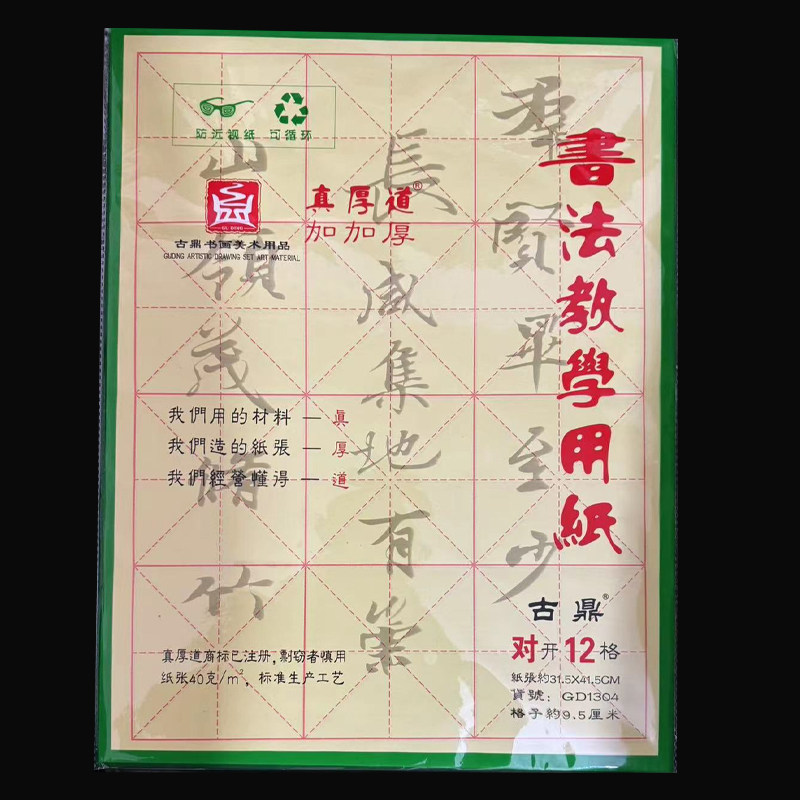 防近视纸 可循环
GU DING
古鼎书画美术用品
GUDING ARTISTIC DRAWING SET ART MATERIAL
真厚道®
加加厚
書法教學用紙
羣賢畢至少
長咸集地有崇
山嶺茂脩竹
我們用的材料一真
我們造的紙張一厚
我們經營懂得一道
真厚道商标已注册,剽窃者慎用
纸张40克/m²,标准生产工艺
古鼎®
对开12格
紙張約31.5X41.5CM
貨號:GD1304
格子約9.5厘米